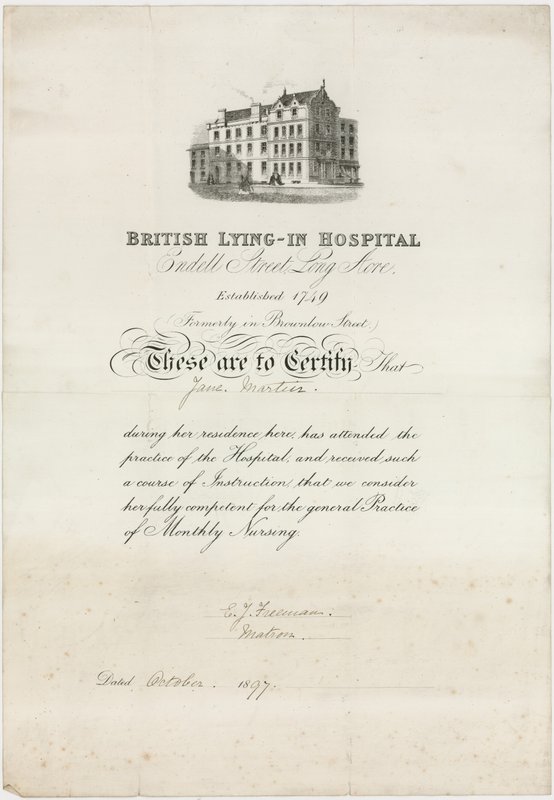 BRITISH LYING-IN HOSPITAL
Endell Street, Long Acre.
Established 1749
(Formerly in Brownlow Street.)
These are to Certify That
Jane Martin.
during her residence here, has attended the
practice of the Hospital, and received such
a course of Instruction, that we consider
her fully competent for the general Practice
of Monthly Nursing.
E. J. Freeman.
Matron.
Dated October. 1897.